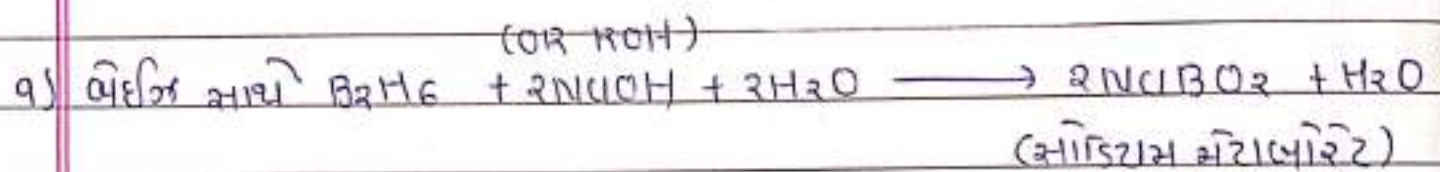 (OR KOH)
૧) બેઈઝ સાથે B2H6 + 2NaOH + 2H2O ⟶ 2NaBO2 + H2O
(સોડિયમ મેટાબોરેટ)